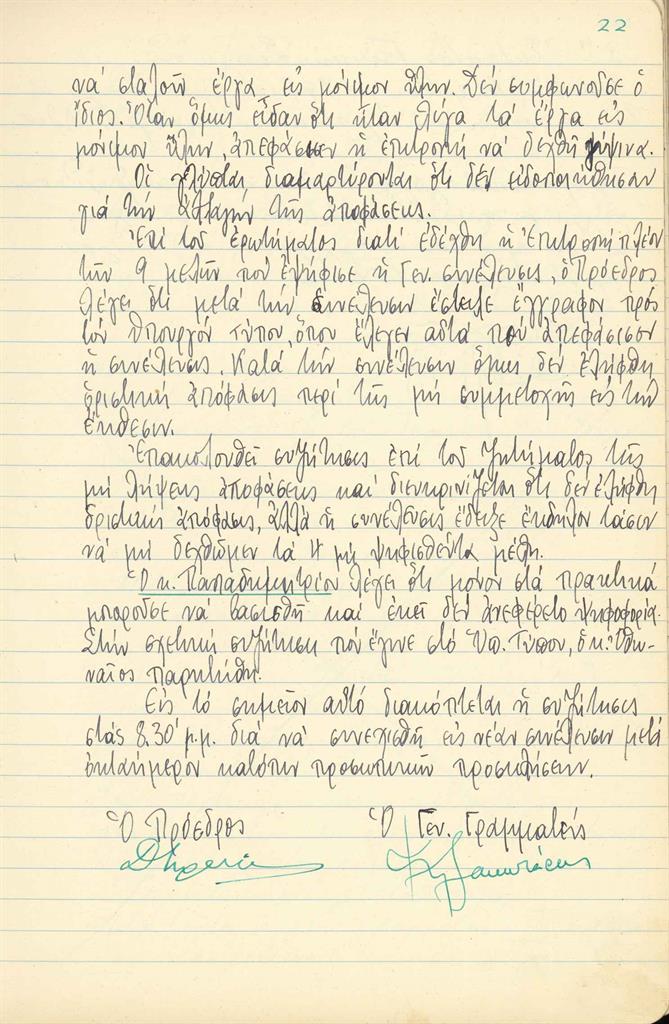 22
νά σταλοῦν ἔργα εἰς μόνιμον ὕλην. Δέν συμφωνοῦσε ὁ
ἴδιος. Ὅταν ὅμως εἶδαν ὅτι ἦταν λίγα τά ἔργα εἰς
μόνιμον ὕλην, ἀπεφάσισεν ἡ ἐπιτροπή νά δεχθῇ γύψινα.
Οἱ γλύπται διαμαρτύρονται ὅτι δέν εἰδοποιήθησαν
γιά τήν ἀλλαγήν τῆς ἀποφάσεως.
Ἐπί τοῦ ἐρωτήματος διατί ἐδέχθη ἡ Ἐπιτροπή πλέον
τῶν 9 μελῶν πού ἐψήφισε ἡ Γεν. συνέλευσις, ὁ Πρόεδρος
λέγει ὅτι μετά τήν συνέλευσιν ἔστειλε ἔγγραφον πρός
τόν Ὑπουργόν Τύπου, ὅπου ἔλεγεν αὐτά πού ἀπεφάσισεν
ἡ συνέλευσις. Κατά τήν συνέλευσιν ὅμως δέν ἐλήφθη
ὁριστική ἀπόφασις περί τῆς μή συμμετοχῆς εἰς τήν
ἔκθεσιν.
Ἐπακολουθεῖ συζήτησις ἐπί τοῦ ζητήματος τῆς
μή λήψεως ἀποφάσεως καί διευκρινίζεται ὅτι δέν ἐλήφθη
ὁριστική ἀπόφασις, ἀλλά ἡ συνέλευσις ἔδειξε ἔκδηλον τάσιν
νά μή δεχθῶμεν τά μή ψηφισθέντα μέλη.
Ὁ κ. Παπαδημητρίου λέγει ὅτι μόνον στά πρακτικά
μποροῦσε νά βασισθῇ καί ἐκεῖ δέν ἀνεφέρετο ψηφοφορία.
Στήν σχετική συζήτηση πού ἔγινε στό Ὑπ. Τύπου, ὁ κ. Ἀθη-
ναῖος παρητήθη.
Εἰς τό σημεῖον αὐτό διακόπτεται ἡ συζήτησις
στάς 8.30' μ.μ. διά νά συνεχισθῇ εἰς νέαν συνέλευσιν μετά
ὀκταήμερον κατόπιν προσωπικῶν προσκλήσεων.
Ὁ Πρόεδρος Ὁ Γεν. Γραμματεύς